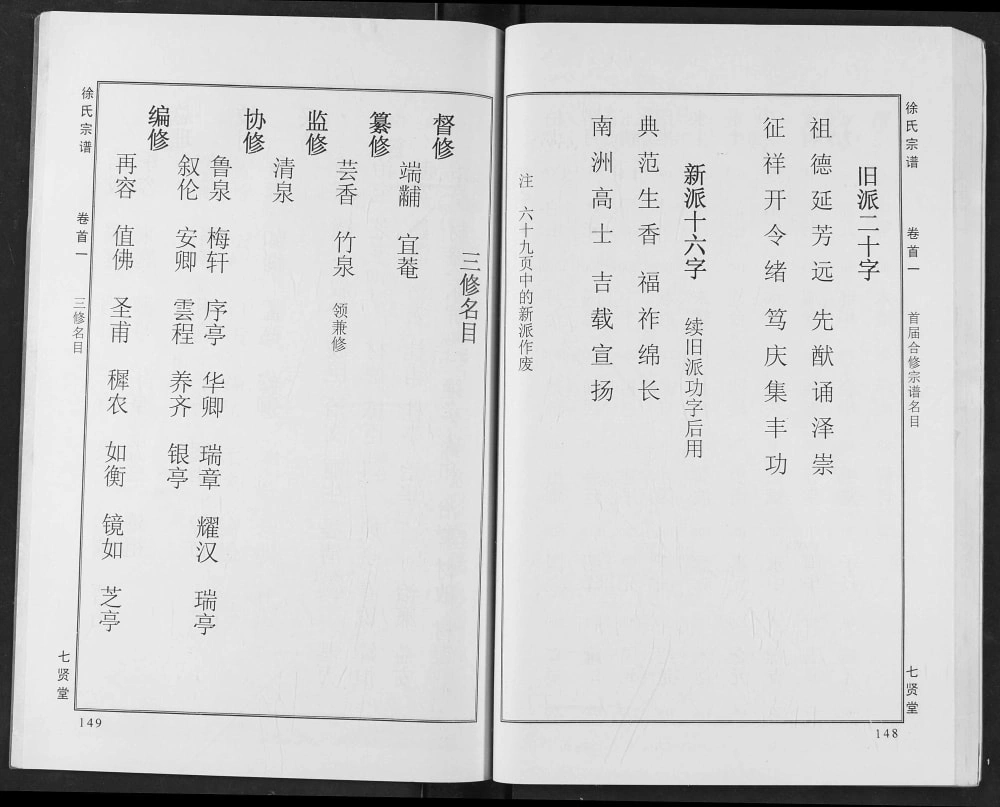 徐氏宗谱 卷首一 首届合修宗谱名目 七贤堂
148
旧派二十字
祖德延芳远 先猷诵泽崇
征祥开令绪 笃庆集丰功
新派十六字 续旧派功字后用
典范生香 福祚绵长
南洲高士 吉载宣扬
注 六十九页中的新派作废
三修名目
督修
端黼 宜菴
纂修
芸香 竹泉 领兼修
监修
清泉
协修
鲁泉 梅轩 序亭 华卿 瑞章 耀汉 瑞亭
叙伦 安卿 雲程 养齐 银亭
编修
再容 值佛 圣甫 穉农 如衡 镜如 芝亭
徐氏宗谱 卷首一 三修名目 七贤堂
149